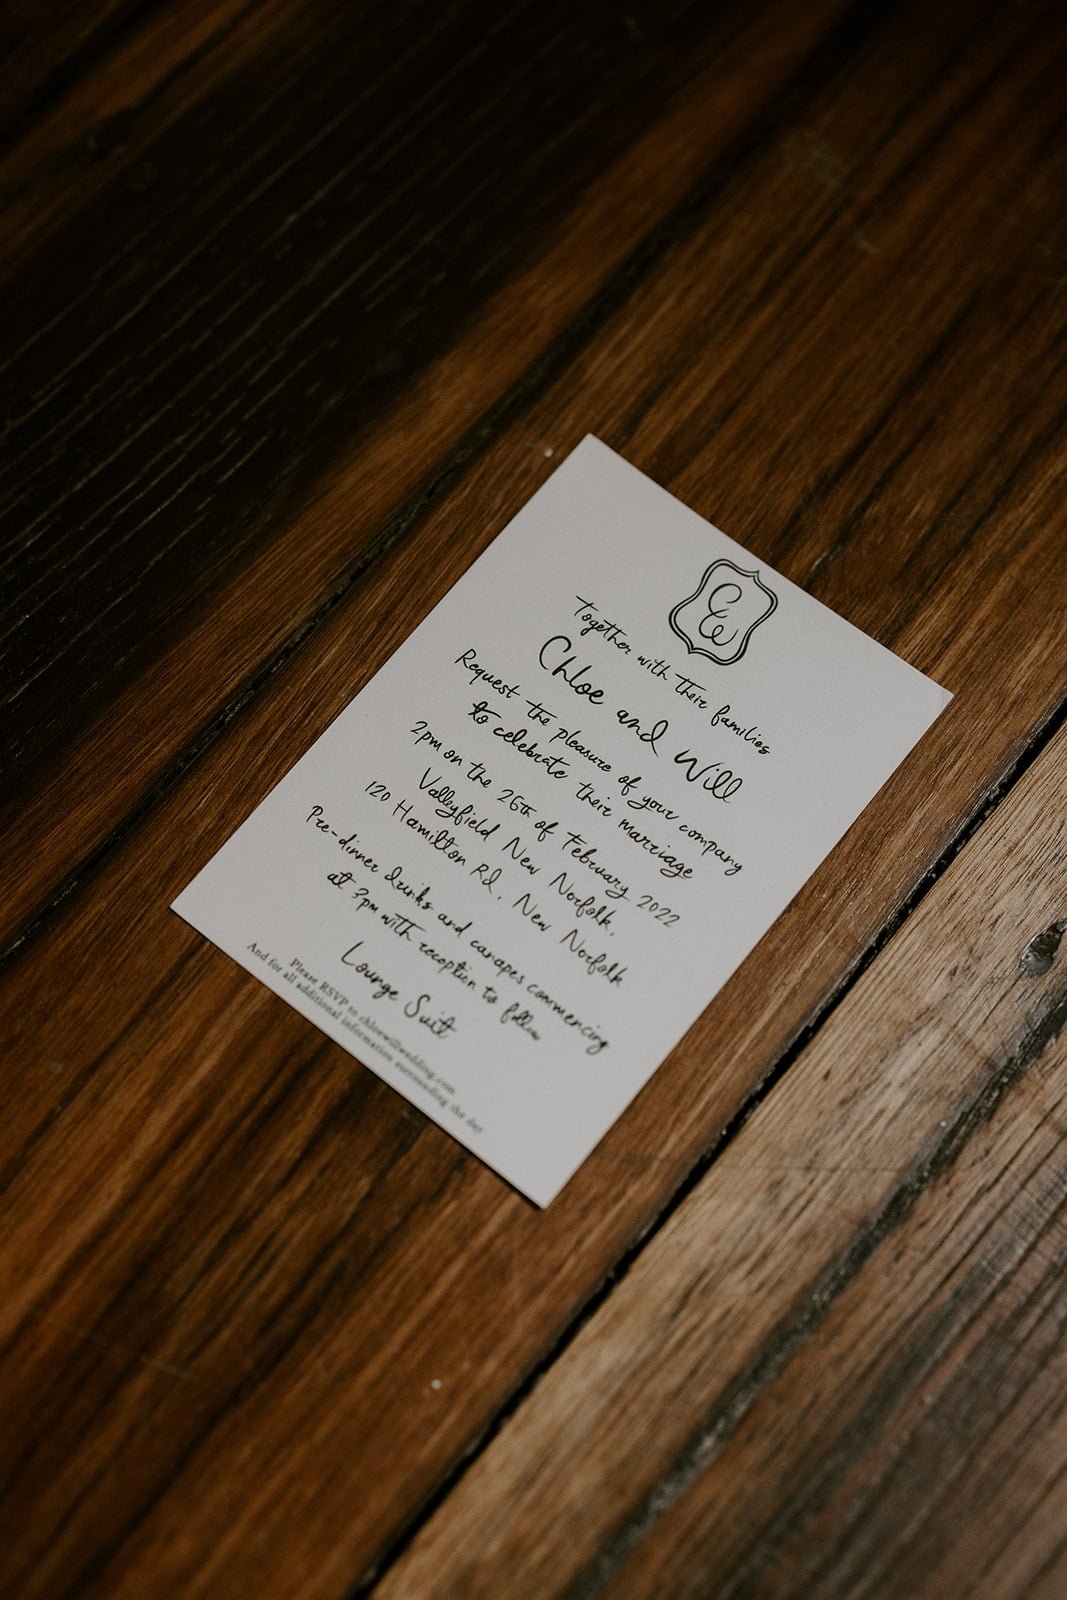 CW
Together with their families
Chloe and Will
Request the pleasure of your company
to celebrate their marriage
2pm on the 26th of February 2022
Valleyfield New Norfolk,
120 Hamilton Rd, New Norfolk
Pre-dinner drinks and canapes commencing
at 3pm with reception to follow
Lounge Suit
Please RSVP to chloewillwedding.com
And for all additional information surrounding the day